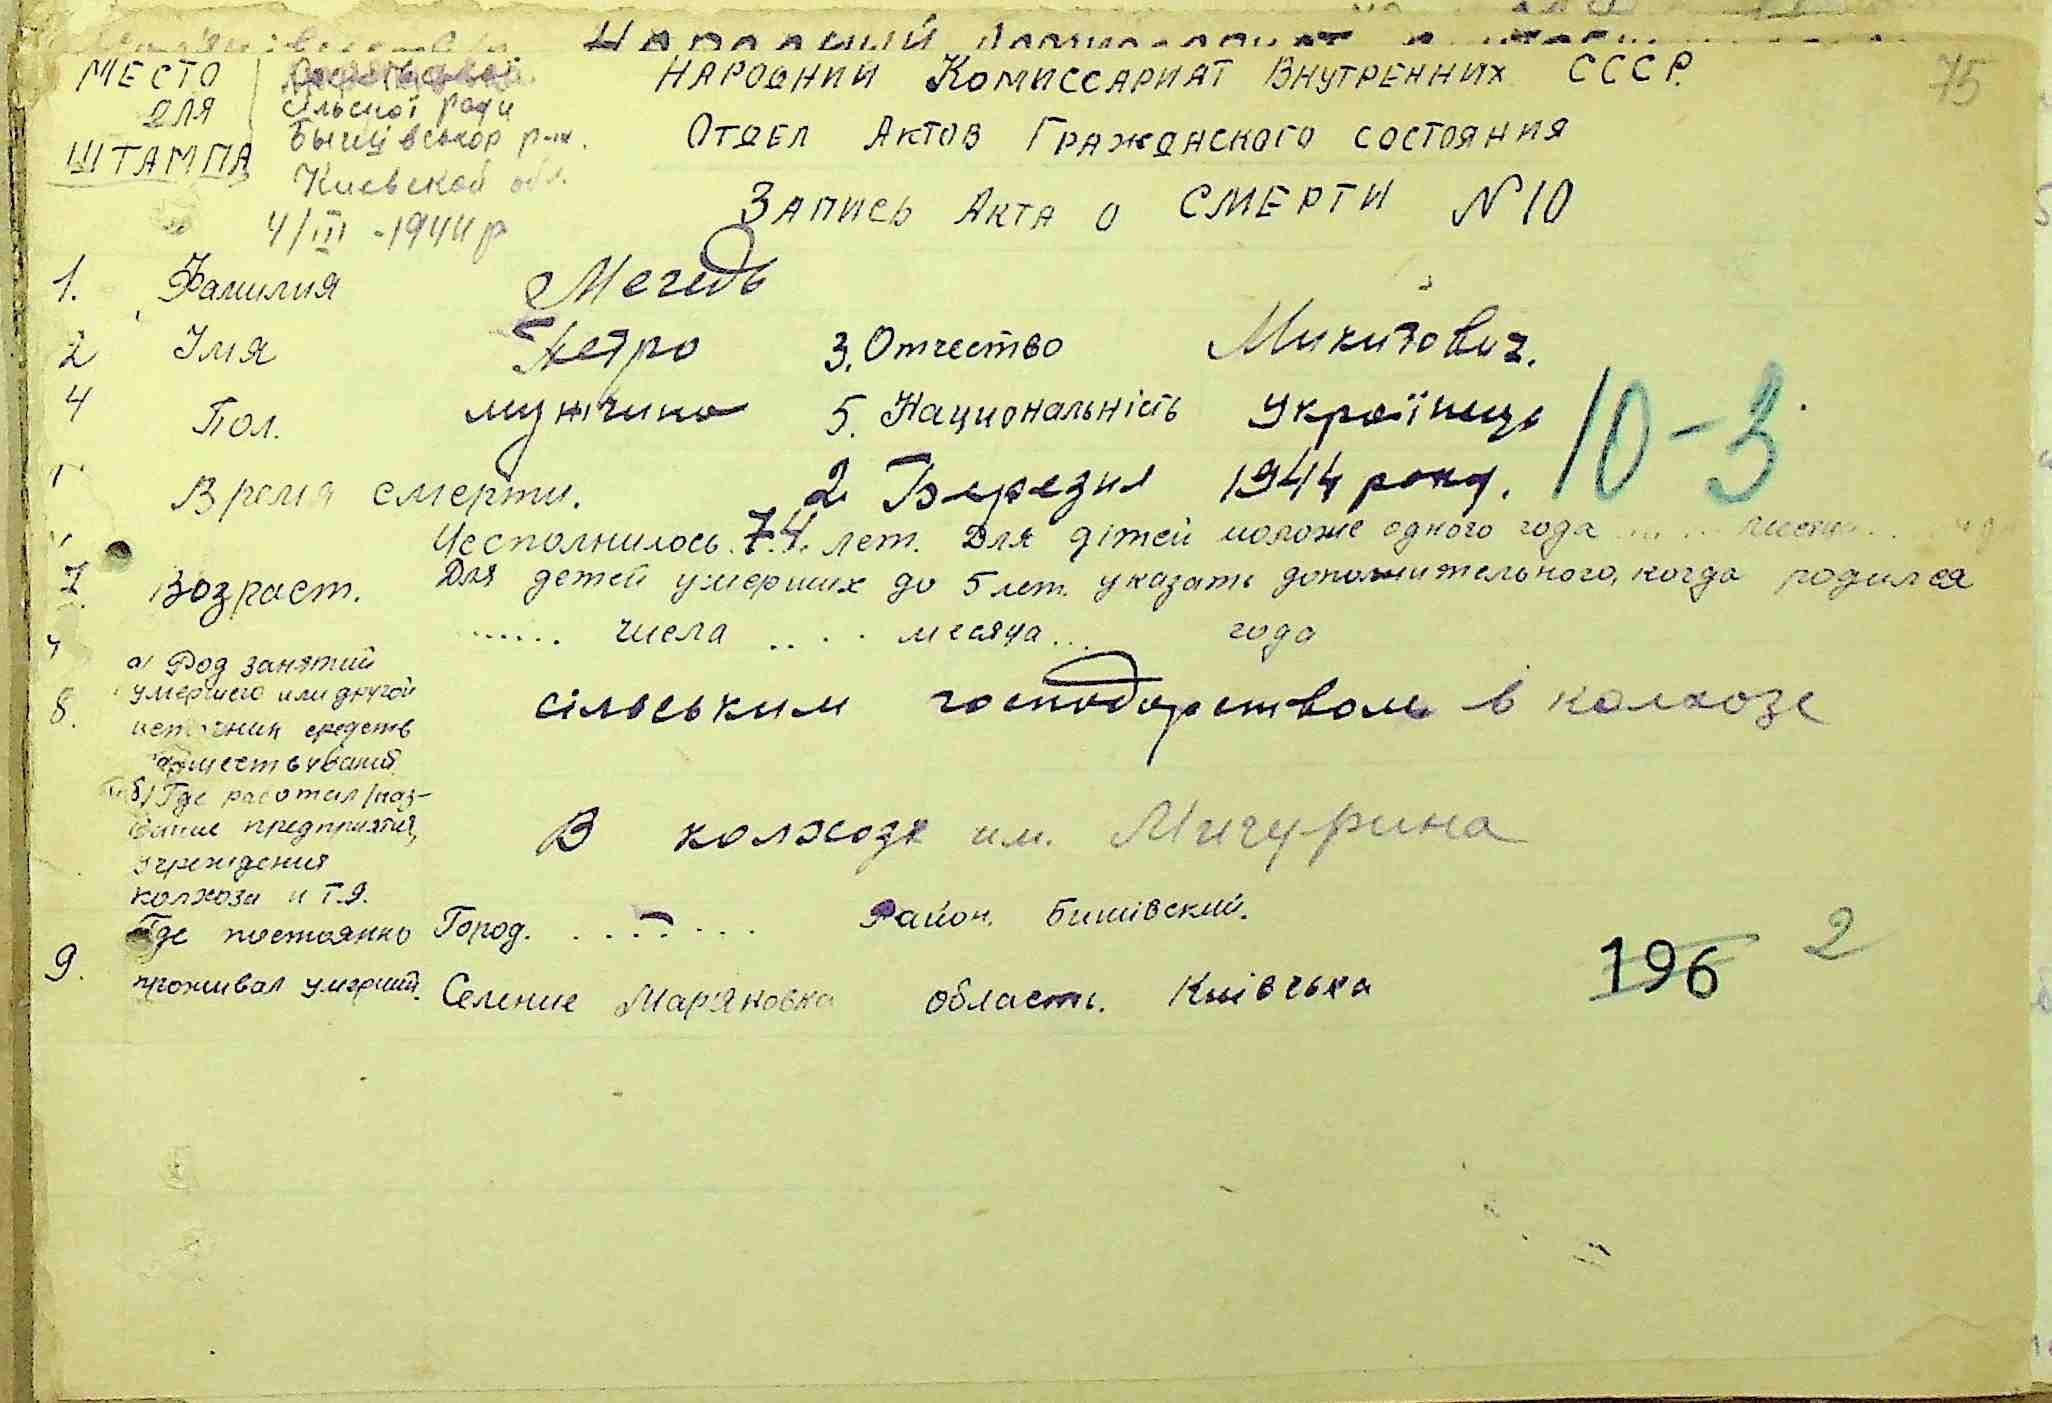 МЕСТО
ДЛЯ
ШТАМПА
сільської ради
Бишівськор р-н.
Киевской обл.
4/III -1944 р
НАРОДНИЙ КОМИССАРИАТ ВНУТРЕННИХ СССР.
75
ОТДЕЛ АКТОВ ГРАЖДАНСКОГО СОСТОЯНИЯ
ЗАПИСЬ АКТА О СМЕРТИ N 10
1. Фамилия Мегедь
2 Імя Петро 3. Отчество Микитович.
4 Пол. мужчина 5. Национальність Українець
10-3
Время смерти. 2 Березня 1944 року.
Исполнилось 74 лет. Для дітей моложе одного года
7 Возраст. Для детей умерших до 5 лет. указать дополнительного, когда родился
...... числа .... месяца ... года
8. а) Род занятий
умершего или другой
источник средств
существування
сільським господарством в колхозе
б) Где работал /наз-
вание предприятия,
учреждения
колхоза и т.д.
В колхозе им. Мичурина
9. Где постоянно Город. ....... Район. Бишівский.
проживал умерший. Селение Мар'яновка область. Київська
196 2